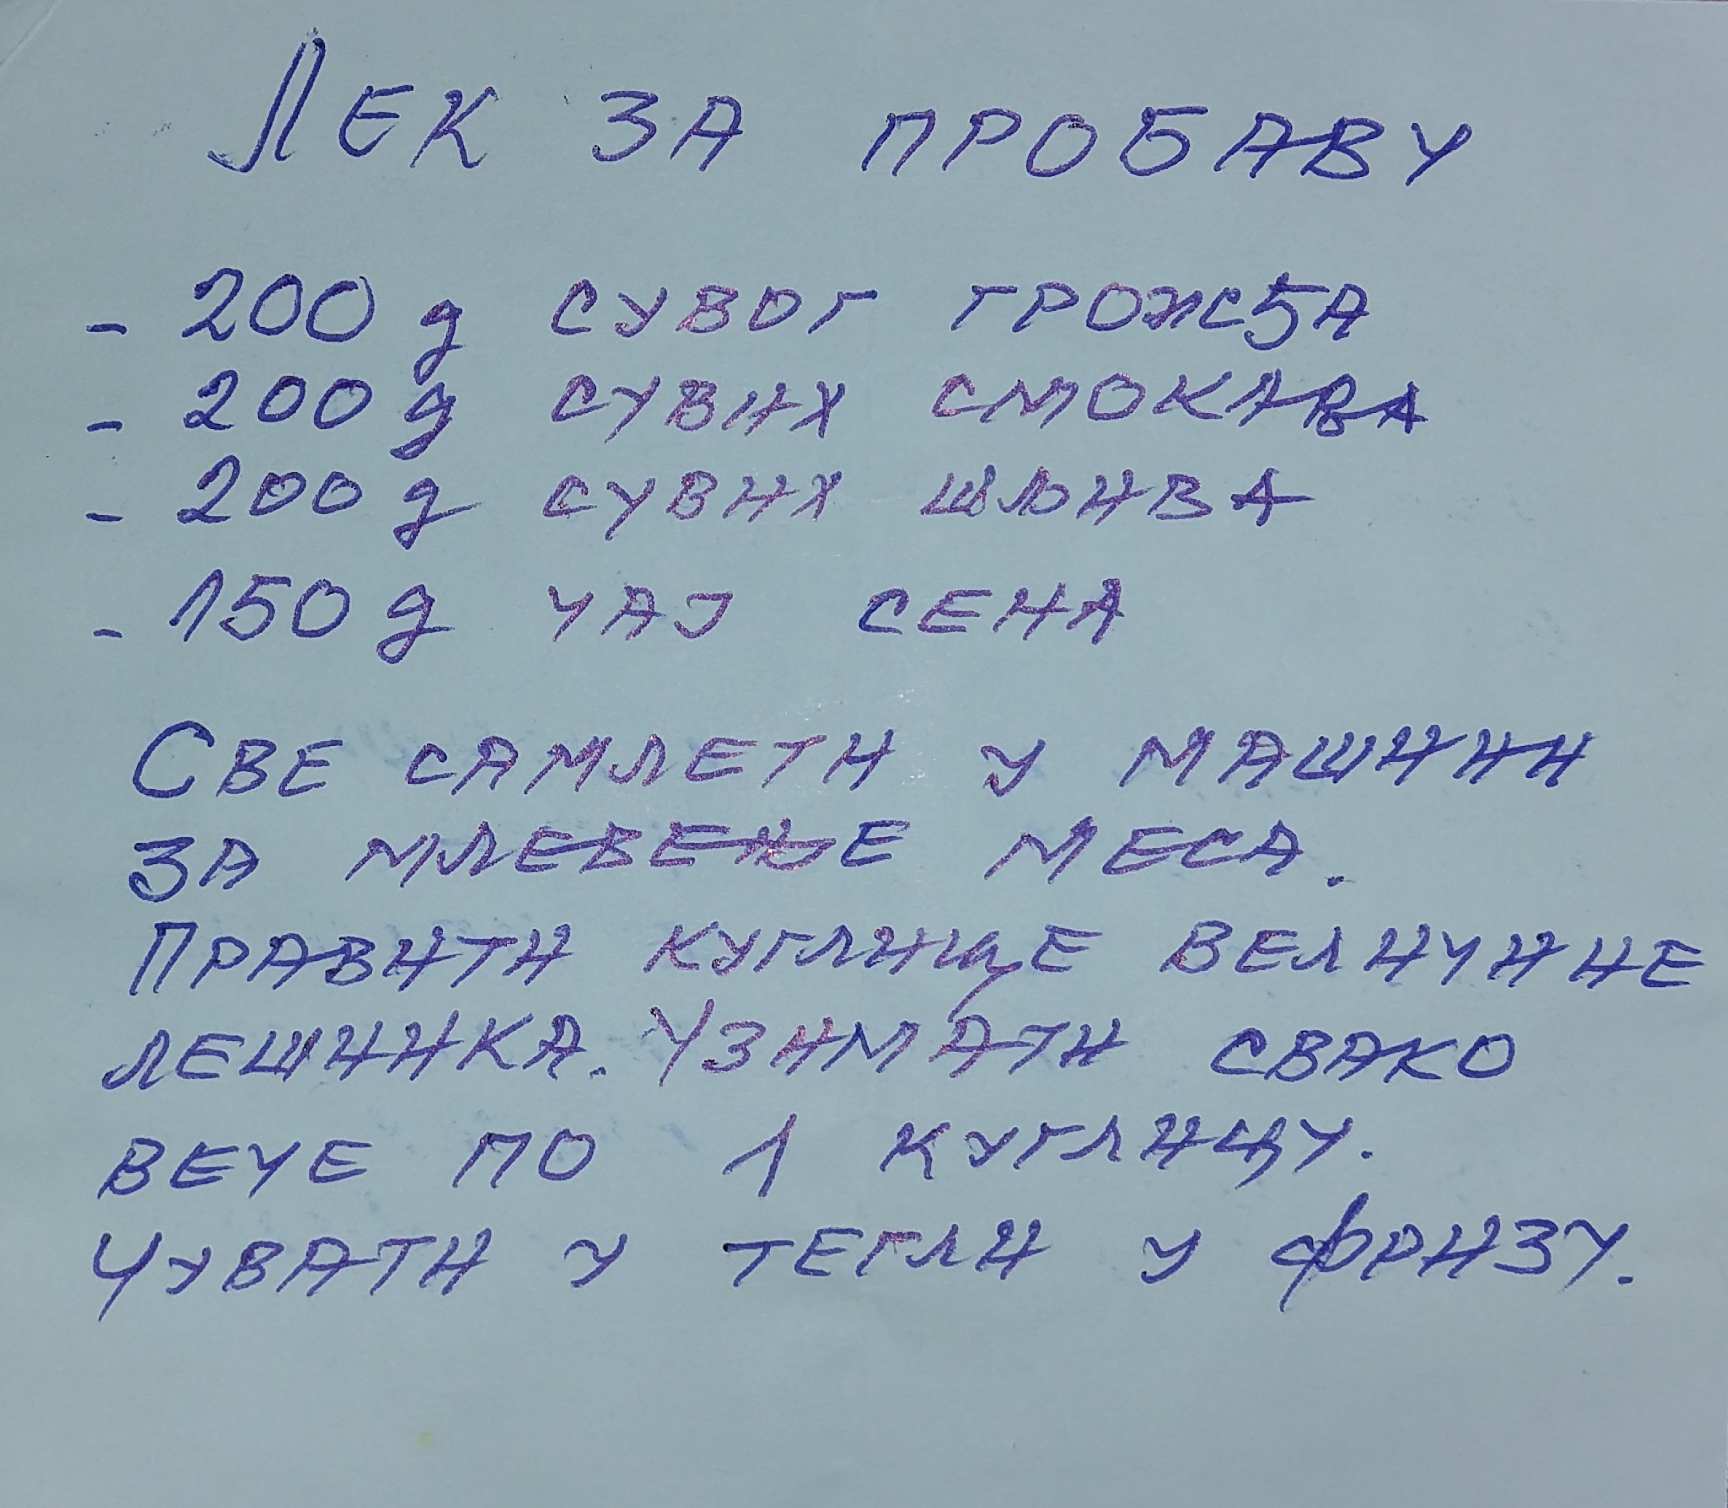 ЛЕК ЗА ПРОБАВУ
- 200 g СУВОГ ГРОЖЂА
- 200 g СУВИХ СМОКАВА
- 200 g СУВИХ ШЉИВА
- 150 g ЧАЈ СЕНА
СВЕ САМЛЕТИ У МАШИНИ
ЗА МЛЕВЕЊЕ МЕСА.
ПРАВИТИ КУГЛИЦЕ ВЕЛИЧИНЕ
ЛЕШНИКА. УЗИМАТИ СВАКО
ВЕЧЕ ПО 1 КУГЛИЦУ.
ЧУВАТИ У ТЕГЛИ У ФРИЗУ.